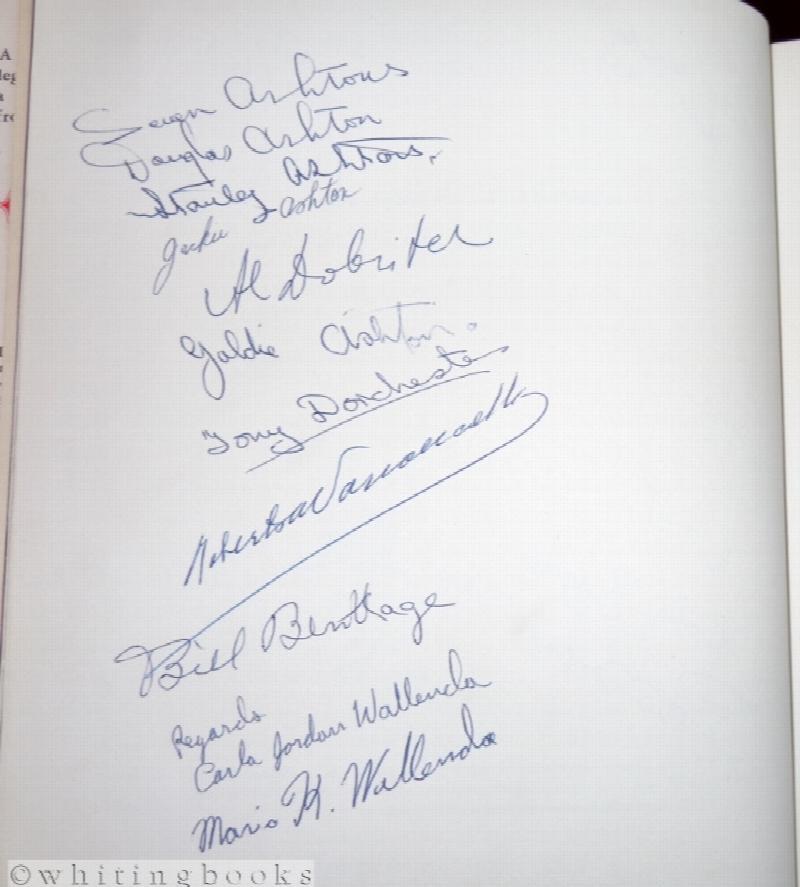 A
leg
a
Seven Ashtons
Douglas Ashton
Stanley Ashton
Ashton
Al Dobritch
Goldie Ashton.
Tony Dorchester
Roberto
Bill Benttage
Regards
Carla Jordan Wallenda
Mario K. Wallenda
©whitingbooks